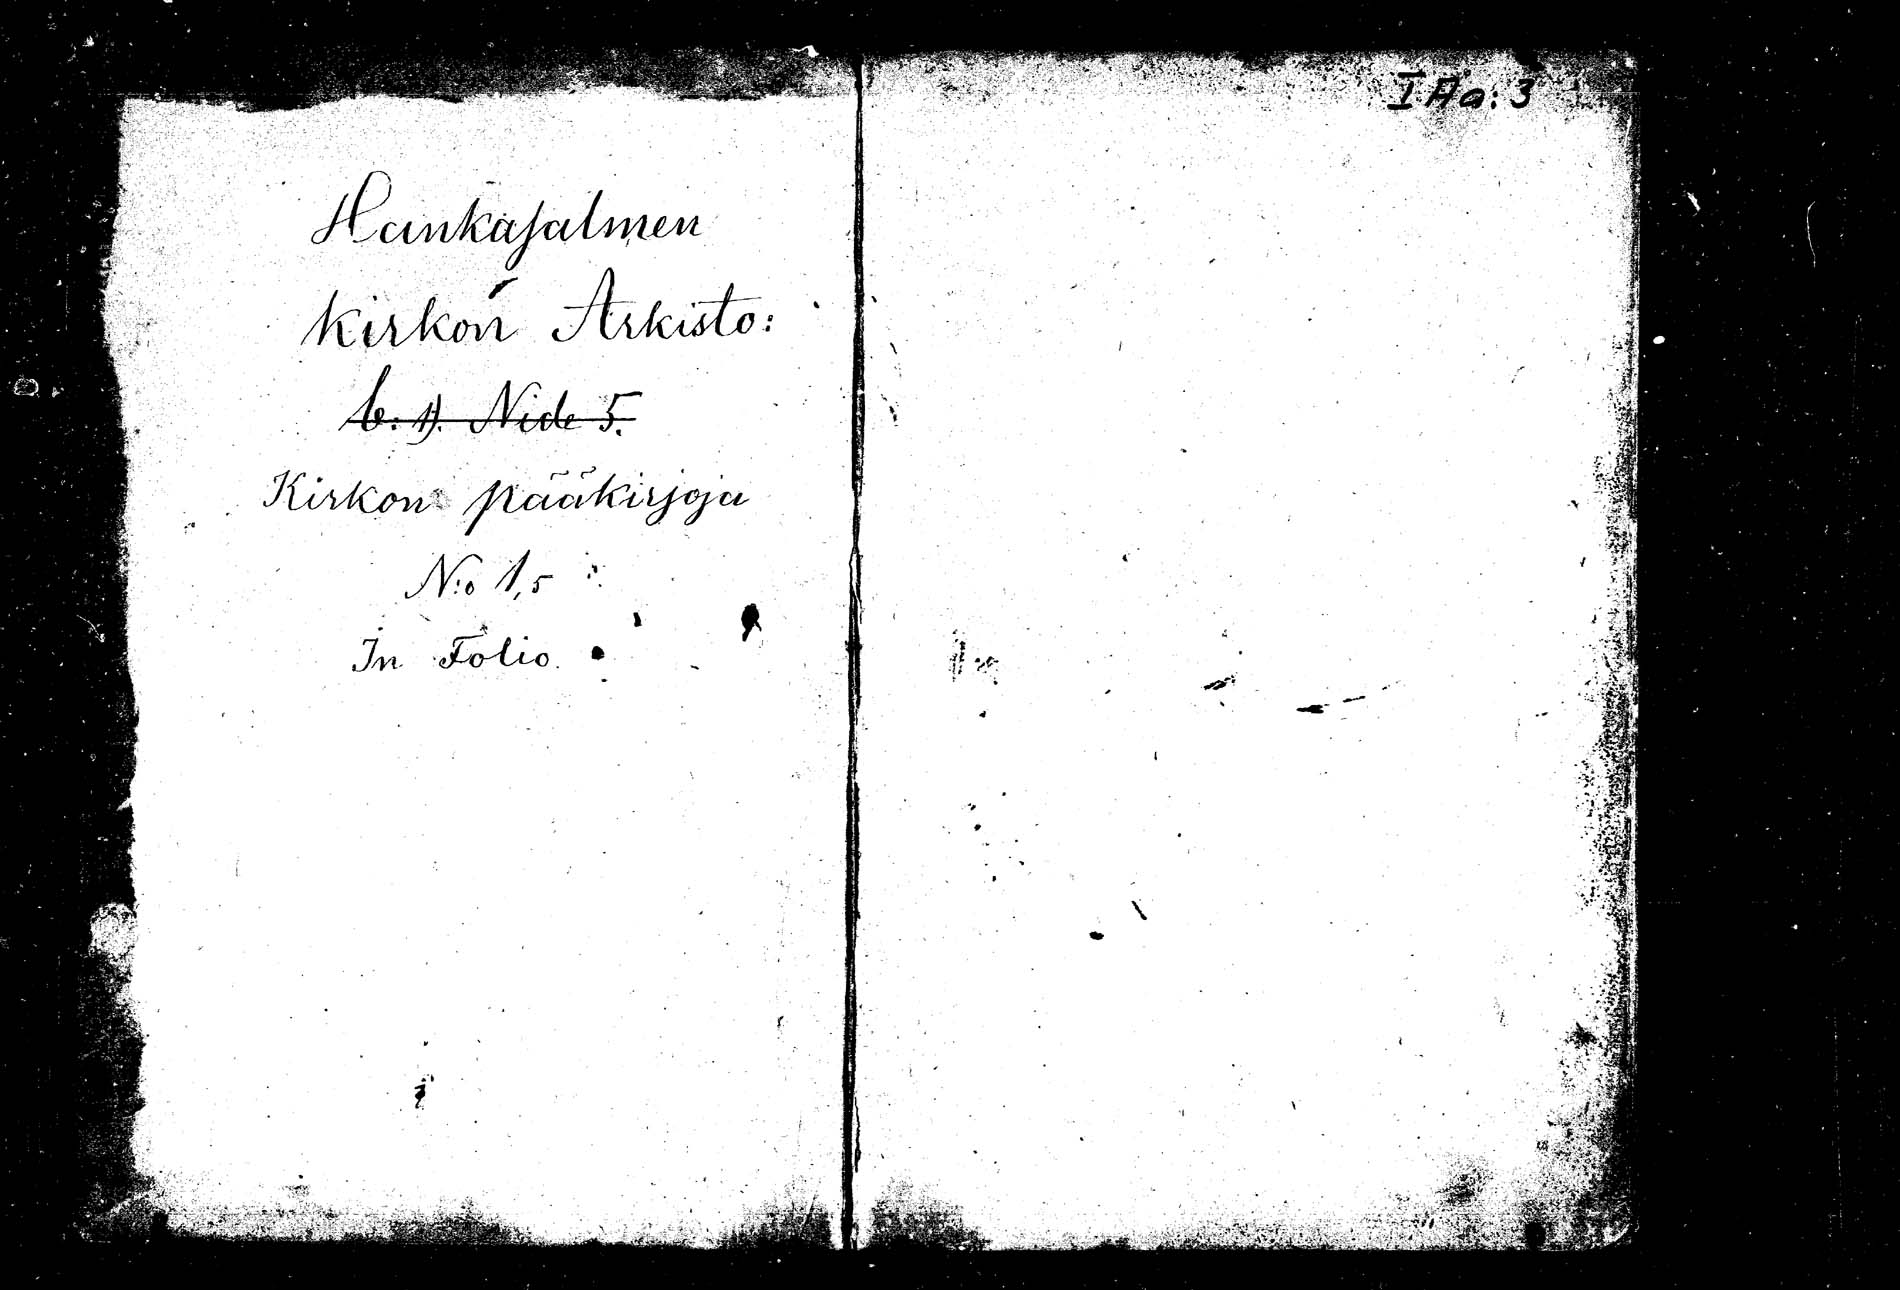 Hankasalmen
Kirkon Arkisto:
b. 1). Nide 5.
Kirkon pääkirjoja
N:o 1,5
In Folio.
I Aa: 3